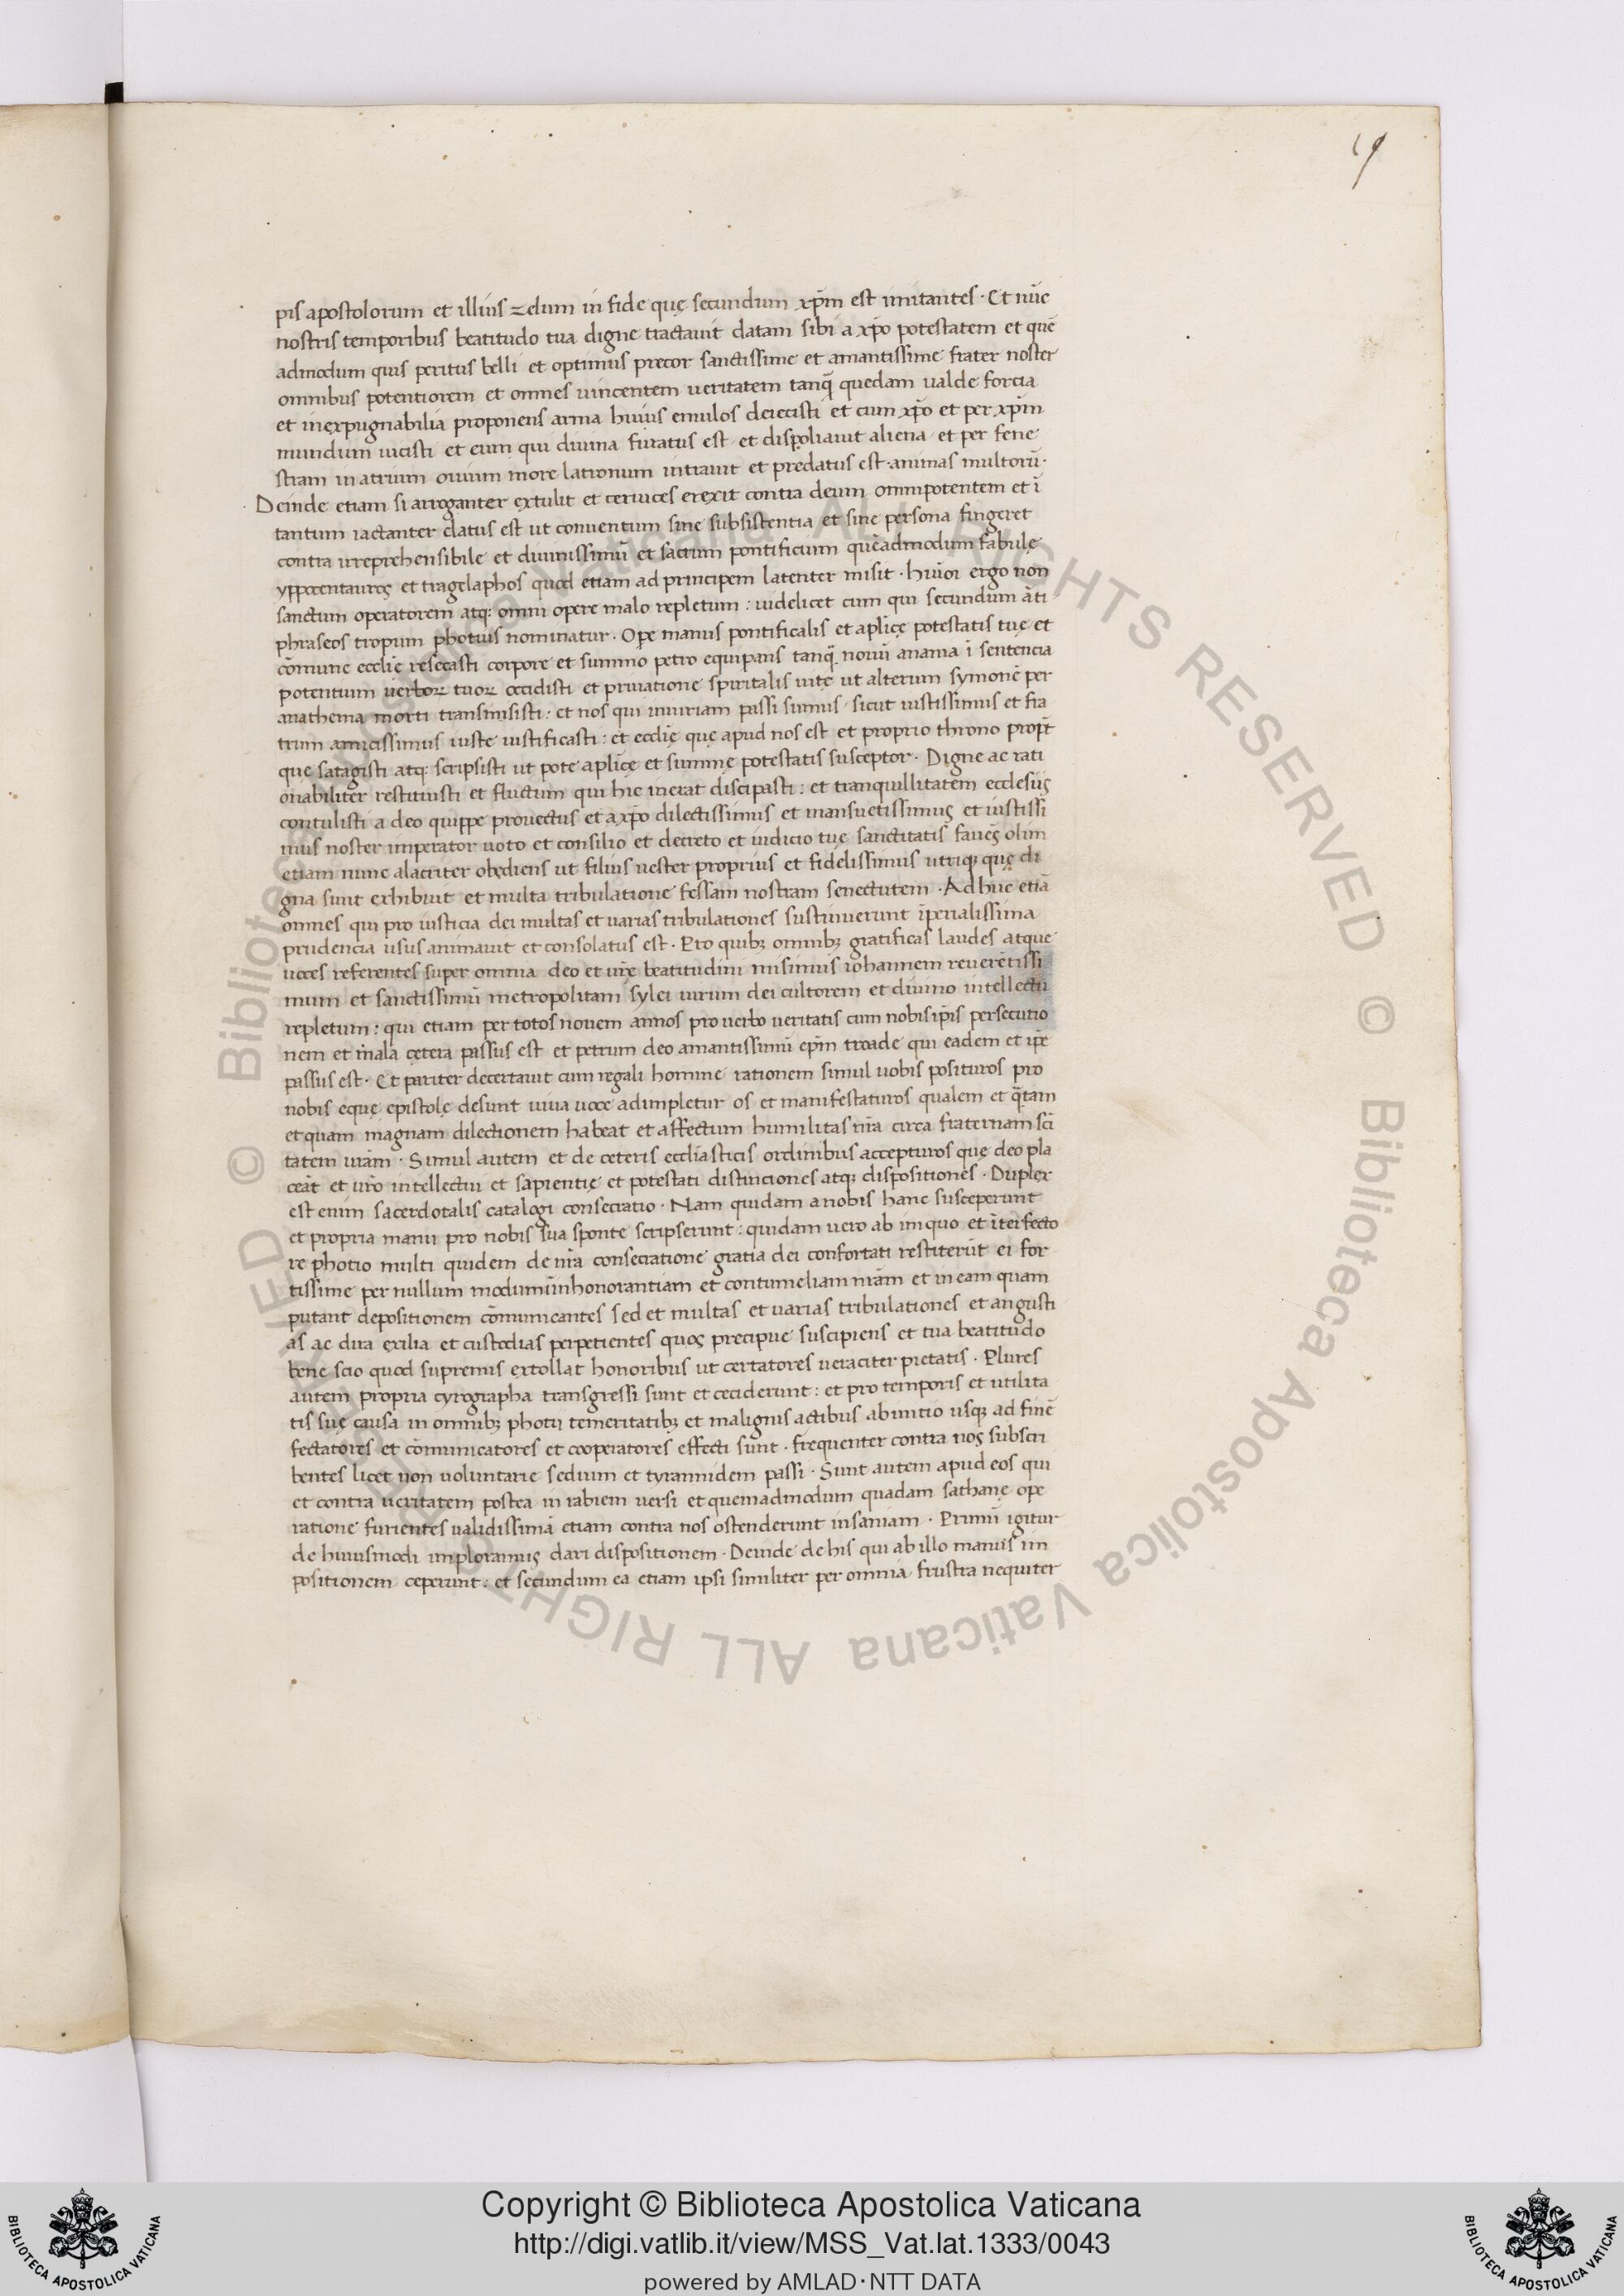 19
pis apostolorum et illius zelum in fide quę secundum xp̄m est imitantes · Et nūc
nostris temporibus beatitudo tua digne tractauit datam sibi a xp̄o potestatem et quē
admodum quis peritus belli et optimus precor sanctissime et amantissime frater noster
omnibus potentiorem et omnes uincentem ueritatem tanq̄ quedam ualde forcia
et inexpugnabilia proponens arma huius emulos deiecisti et cum xp̄o et per xp̄m
mundum uicisti et eum qui diuina furatus est et dispoliauit aliena et per fene
stram in atrium ouium more latronum intrauit et predatus est animas multorū ·
Deinde etiam si arroganter extulit et ceruices erexit contra deum omnipotentem et ī
tantum iactanter elatus est ut conuentum sine subsistentia et sine persona fingeret
contra irreprehensibile et diuinissimū et sacrum pontificium quēadmodum fabulę
yppocentauros et tragelaphos quod etiam ad principem latenter misit · huīoi ergo non
sanctum operatorem atq: omni opere malo repletum : uidelicet eum qui secundum āti
phraseos tropum photius nominatur · Ope manus pontificalis et aplicę potestatis tuę et
cōmune ecclię resecasti corpore et summo petro equipans tanq̄ nouū anania ī sentencia
potentum uerboꝝ tuoꝝ occidisti et priuatione spiritalis uitę ut alterum symonē per
anathema morti transmisisti : et nos qui iniuriam passi sumus sicut iustissimus et fra
trum amicissimus iuste iustificasti : et ecclię quę apud nos est et proprio throno propt̄
que satagisti atq: scripsisti ut pote aplicę et summę potestatis susceptor · Digne ac rati
onabiliter restituisti et fluctum qui hic inerat discipasti : et tranquillitatem ecclesiis
contulisti a deo quippe prouectus et a xp̄o dilectissimus et mansuetissimus et iustissi
mus noster imperator uoto et consilio et decreto et iudicio tuę sanctitatis fauēs olim
etiam nunc alacriter obędiens ut filius uester proprius et fidelissimus utriq: quę di
gna sunt exhibuit et multa tribulatione fessam nostram senectutem · Adhuc etiā
omnes qui pro iusticia dei multas et uarias tribulationes sustinuerunt īperialissima
prudencia usus animauit et consolatus est · Pro quibꝫ omnibꝫ gratificas laudes atque
uoces referentes super omnia deo et urę beatitudini misimus iohannem reuerētissi
mum et sanctissimū metropolitam sylei uirum dei cultorem et diuino intellectu
repletum : qui etiam per totos nouem annos pro uerbo ueritatis cum nobis ip̄is persecutio
nem et mala cętera passus est et petrum deo amantissimū ep̄m troade qui eadem et ip̄e
passus est · Et pariter decertauit cum regali homine rationem simul uobis posituros pro
nobis eque epistolę desunt uiua uoce adimpletur os et manifestaturos qualem et q̄tam
et quam magnam dilectionem habeat et affectum humilitas n̄ra circa fraternam sc̄i
tatem ur̄am · Simul autem et de ceteris eccl̄iasticis ordinibus accepturos quę deo pla
ceāt et ur̄o intellectui et sapientię et potestati distinciones atq: dispositiones · Duplex
est enim sacerdotalis catalogi consecratio · Nam quidam a nobis hanc susceperunt
et propria manu pro nobis sua sponte scripserunt : quidam uero ab iniquo et īterfecto
re photio multi quidem de n̄ra consecratione gratia dei confortati restiterūt ei for
tissime per nullum modum inhonorantiam et contumeliam n̄ram et in eam quam
putant depositionem cōmunicantes sed et multas et uarias tribulationes et angusti
as ac dira exilia et custodias perpetientes quos precipue suscipiens et tua beatitudo
bene scio quod supremis extollat honoribus ut certatores ueraciter pietatis · Plures
autem propria cyrographa transgressi sunt et ceciderunt : et pro temporis et utilita
tis suę causa in omnibꝫ photii temeritatibꝫ et malignis actibus ab initio usq: ad finē
fectatores et cōmunicatores et cooperatores effecti sunt · frequenter contra nos subscri
bentes licet non uoluntarie sed uim et tyrannidem passi · Sunt autem apud eos qui
et contra ueritatem postea in rabiem uersi et quemadmodum quadam sathanę ope
ratione furientes ualidissimā etiam contra nos ostenderunt insaniam · Primū igitur
de huiusmodi imploramus dari dispositionem · Deinde de his qui ab illo manus im
positionem ceperunt : et secundum ea etiam ipsi similiter per omnia frustra nequiter
© Biblioteca Apostolica Vaticana ALL RIGHTS RESERVED © Biblioteca Apostolica Vaticana ALL RIGHTS RESERVED
Copyright © Biblioteca Apostolica Vaticana
http://digi.vatlib.it/view/MSS_Vat.lat.1333/0043
powered by AMLAD · NTT DATA
BIBLIOTECA APOSTOLICA VATICANA
BIBLIOTECA APOSTOLICA VATICANA